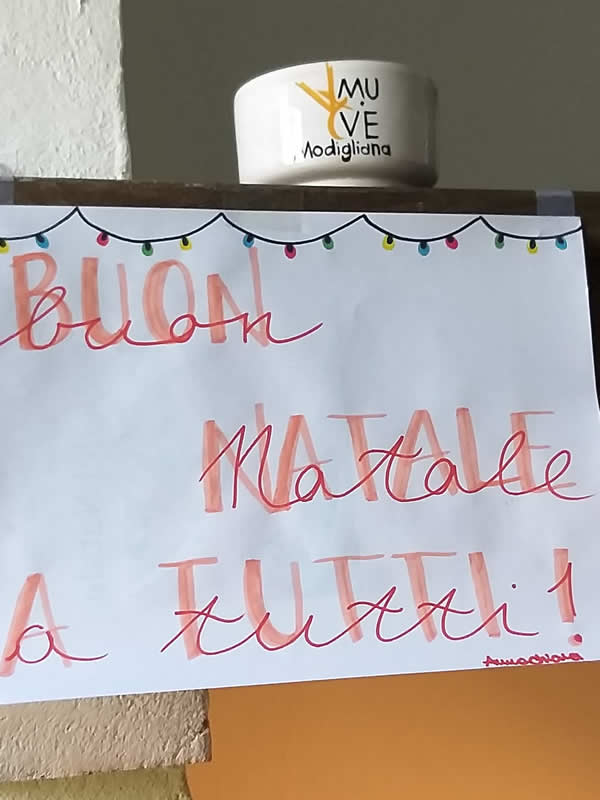 MU
VE
Modigliana
BUON
buon
NATALE
Natale
A TUTTI!
a tutti!
Annachiara